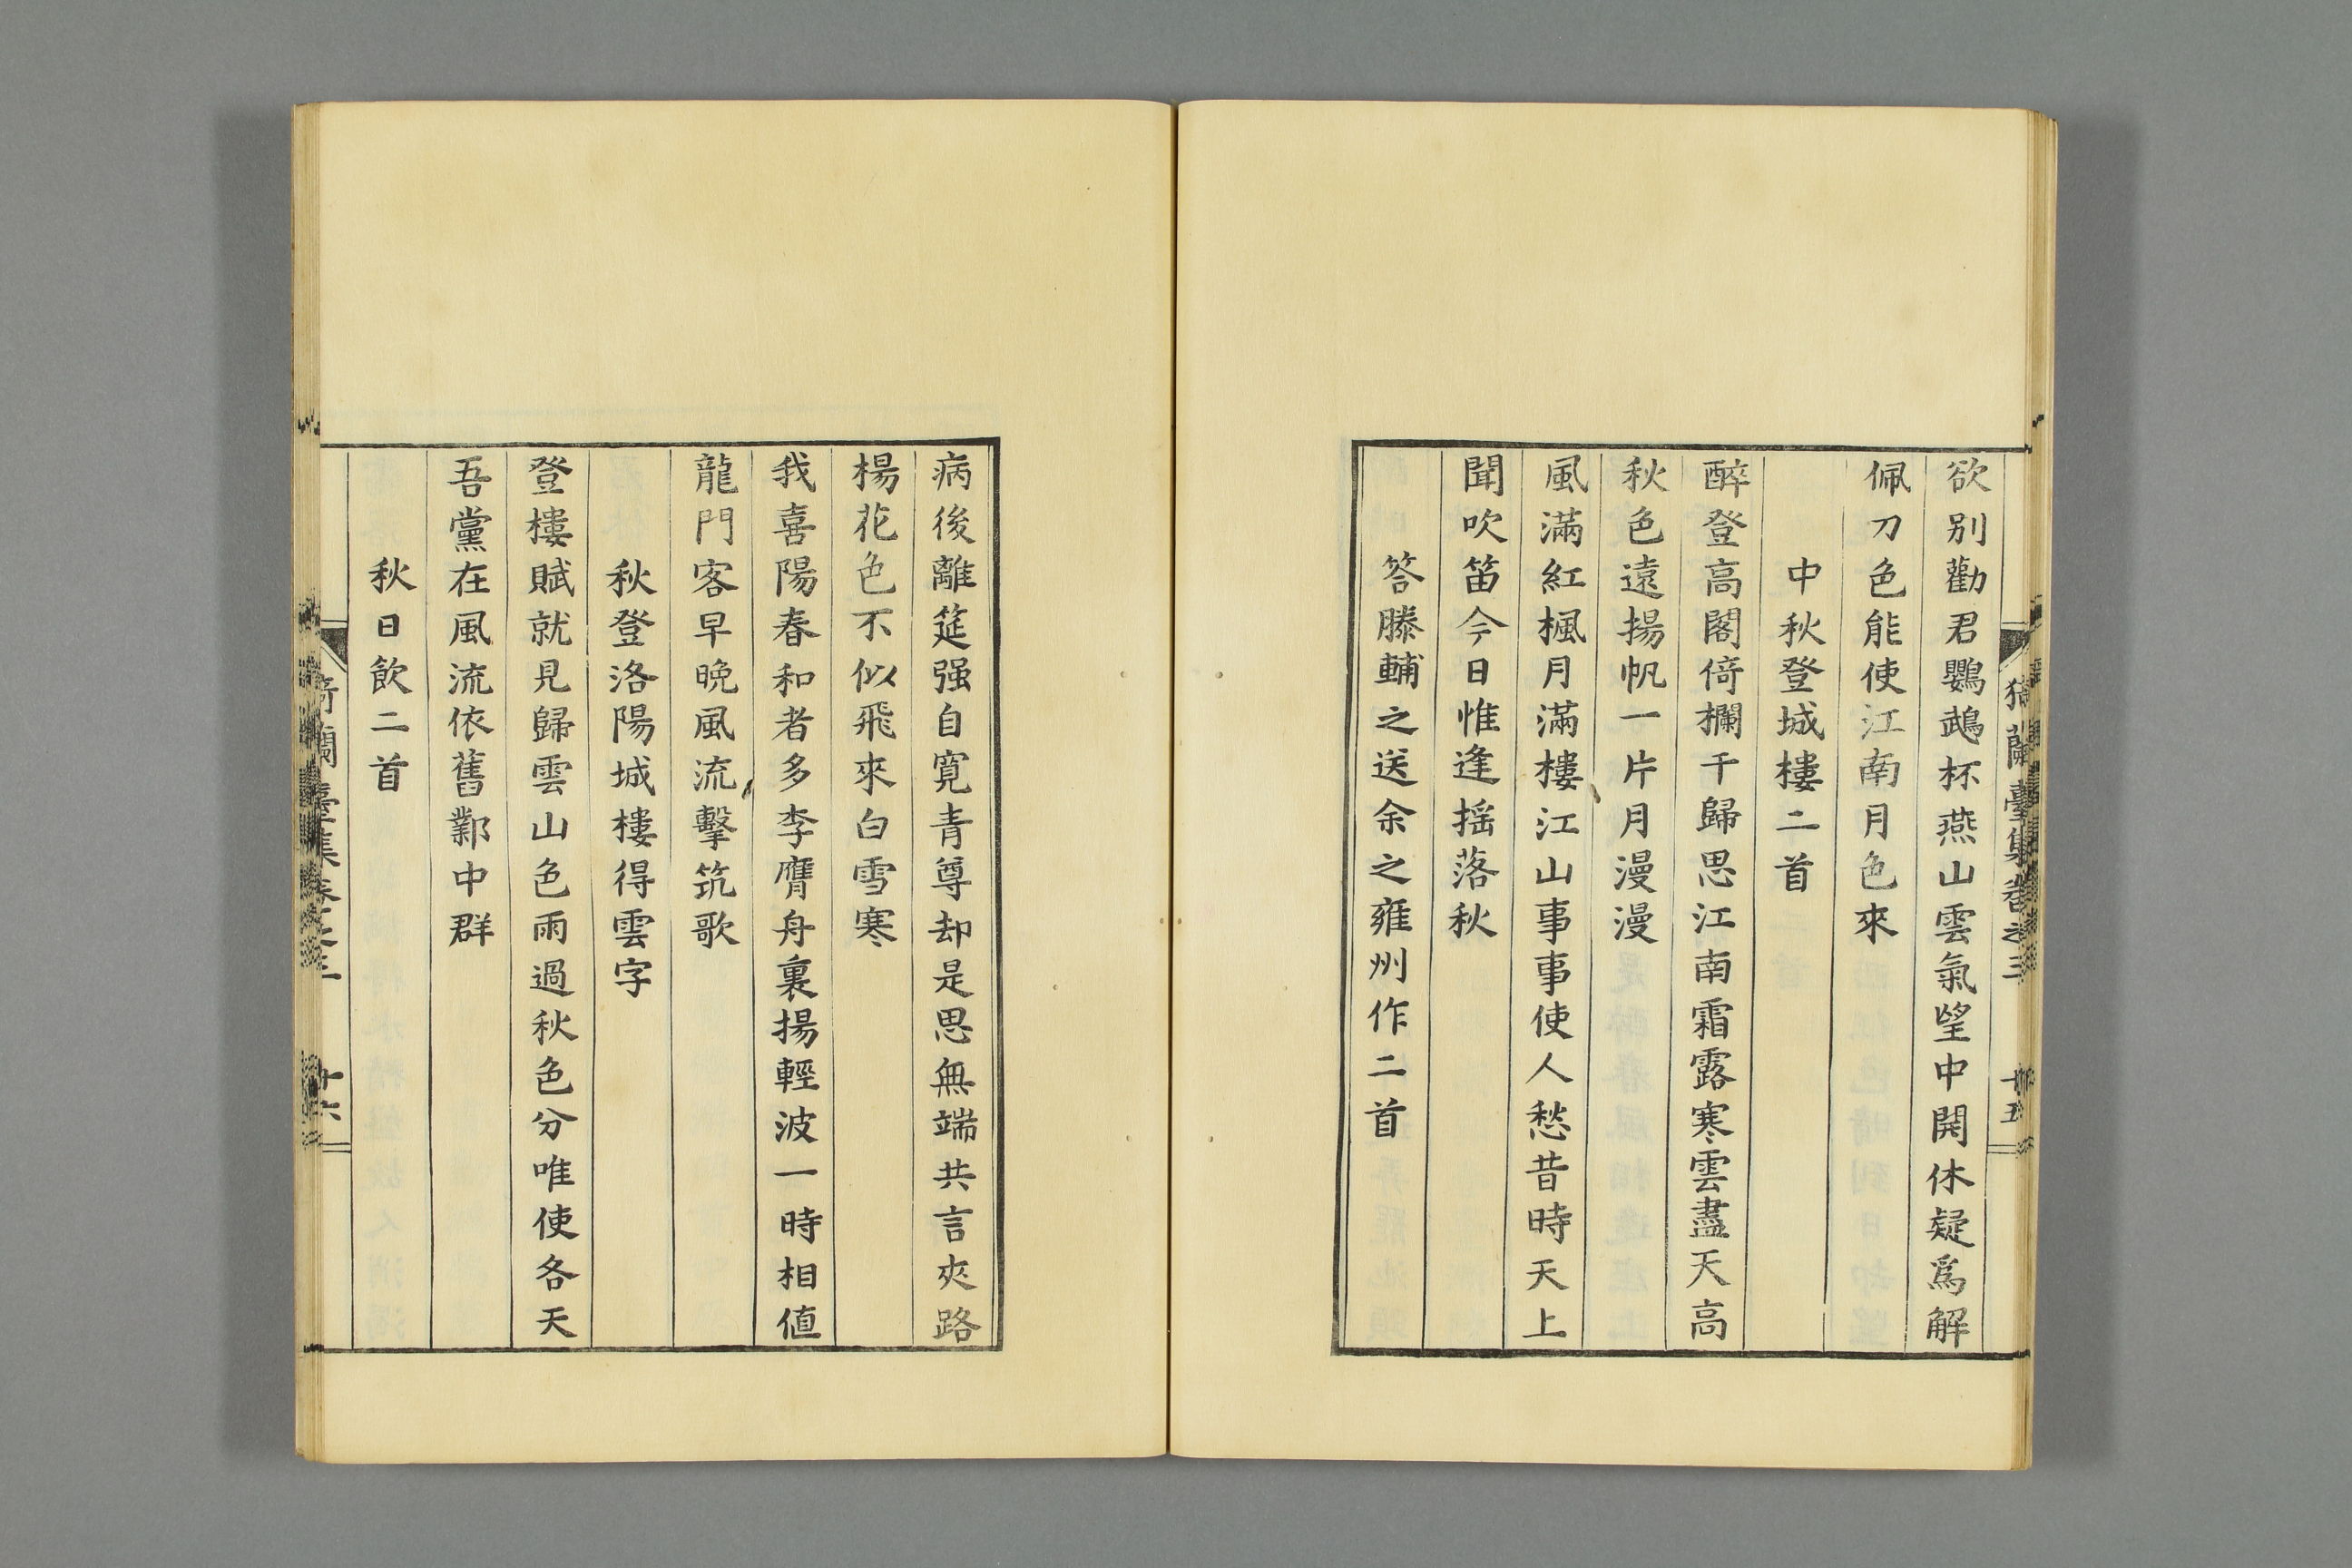 猗蘭臺集卷之三 十五
欲別勸君鸚鵡杯燕山雲氣望中開休疑爲解
佩刀色能使江南月色來
中秋登城樓二首
醉登高閣倚欄干歸思江南霜露寒雲盡天高
秋色遠揚帆一片月漫漫
風滿紅楓月滿樓江山事事使人愁昔時天上
聞吹笛今日惟逢揺落秋
答滕輔之送余之雍州作二首
病後離筵强自寛青尊却是思無端共言夾路
楊花色不似飛來白雪寒
我喜陽春和者多李膺舟裏揚輕波一時相値
龍門客早晩風流擊筑歌
秋登洛陽城樓得雲字
登樓賦就見歸雲山色雨過秋色分唯使各天
吾黨在風流依舊鄴中群
秋日飲二首
猗蘭臺集卷之三 十六